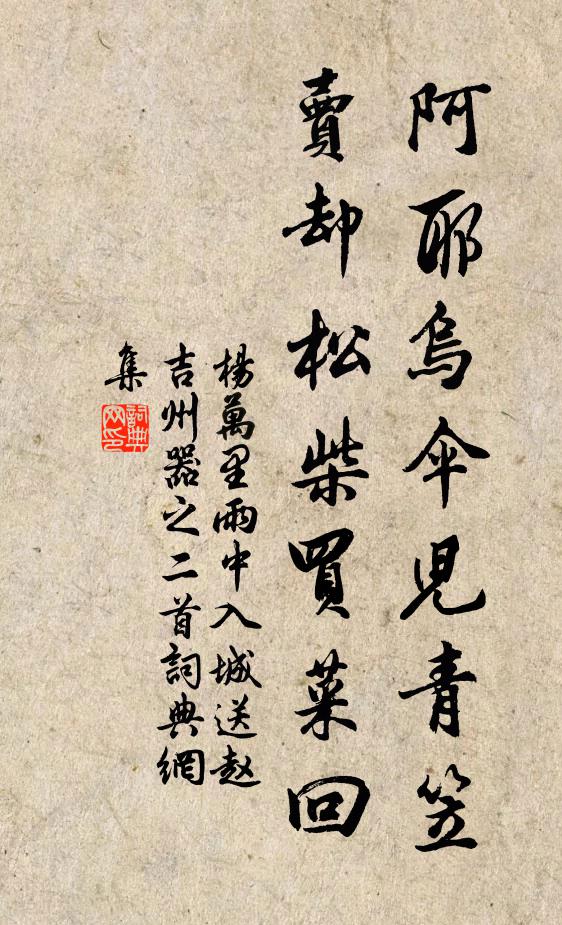 阿耶烏傘兒青笠
賣却松柴買菜回
楊萬里雨中入城送赵
吉州器之二首詞典網
集
詞典
网印